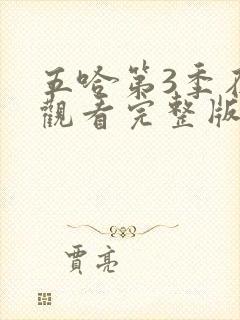 五哈第3季
觀看完整版
賈亮